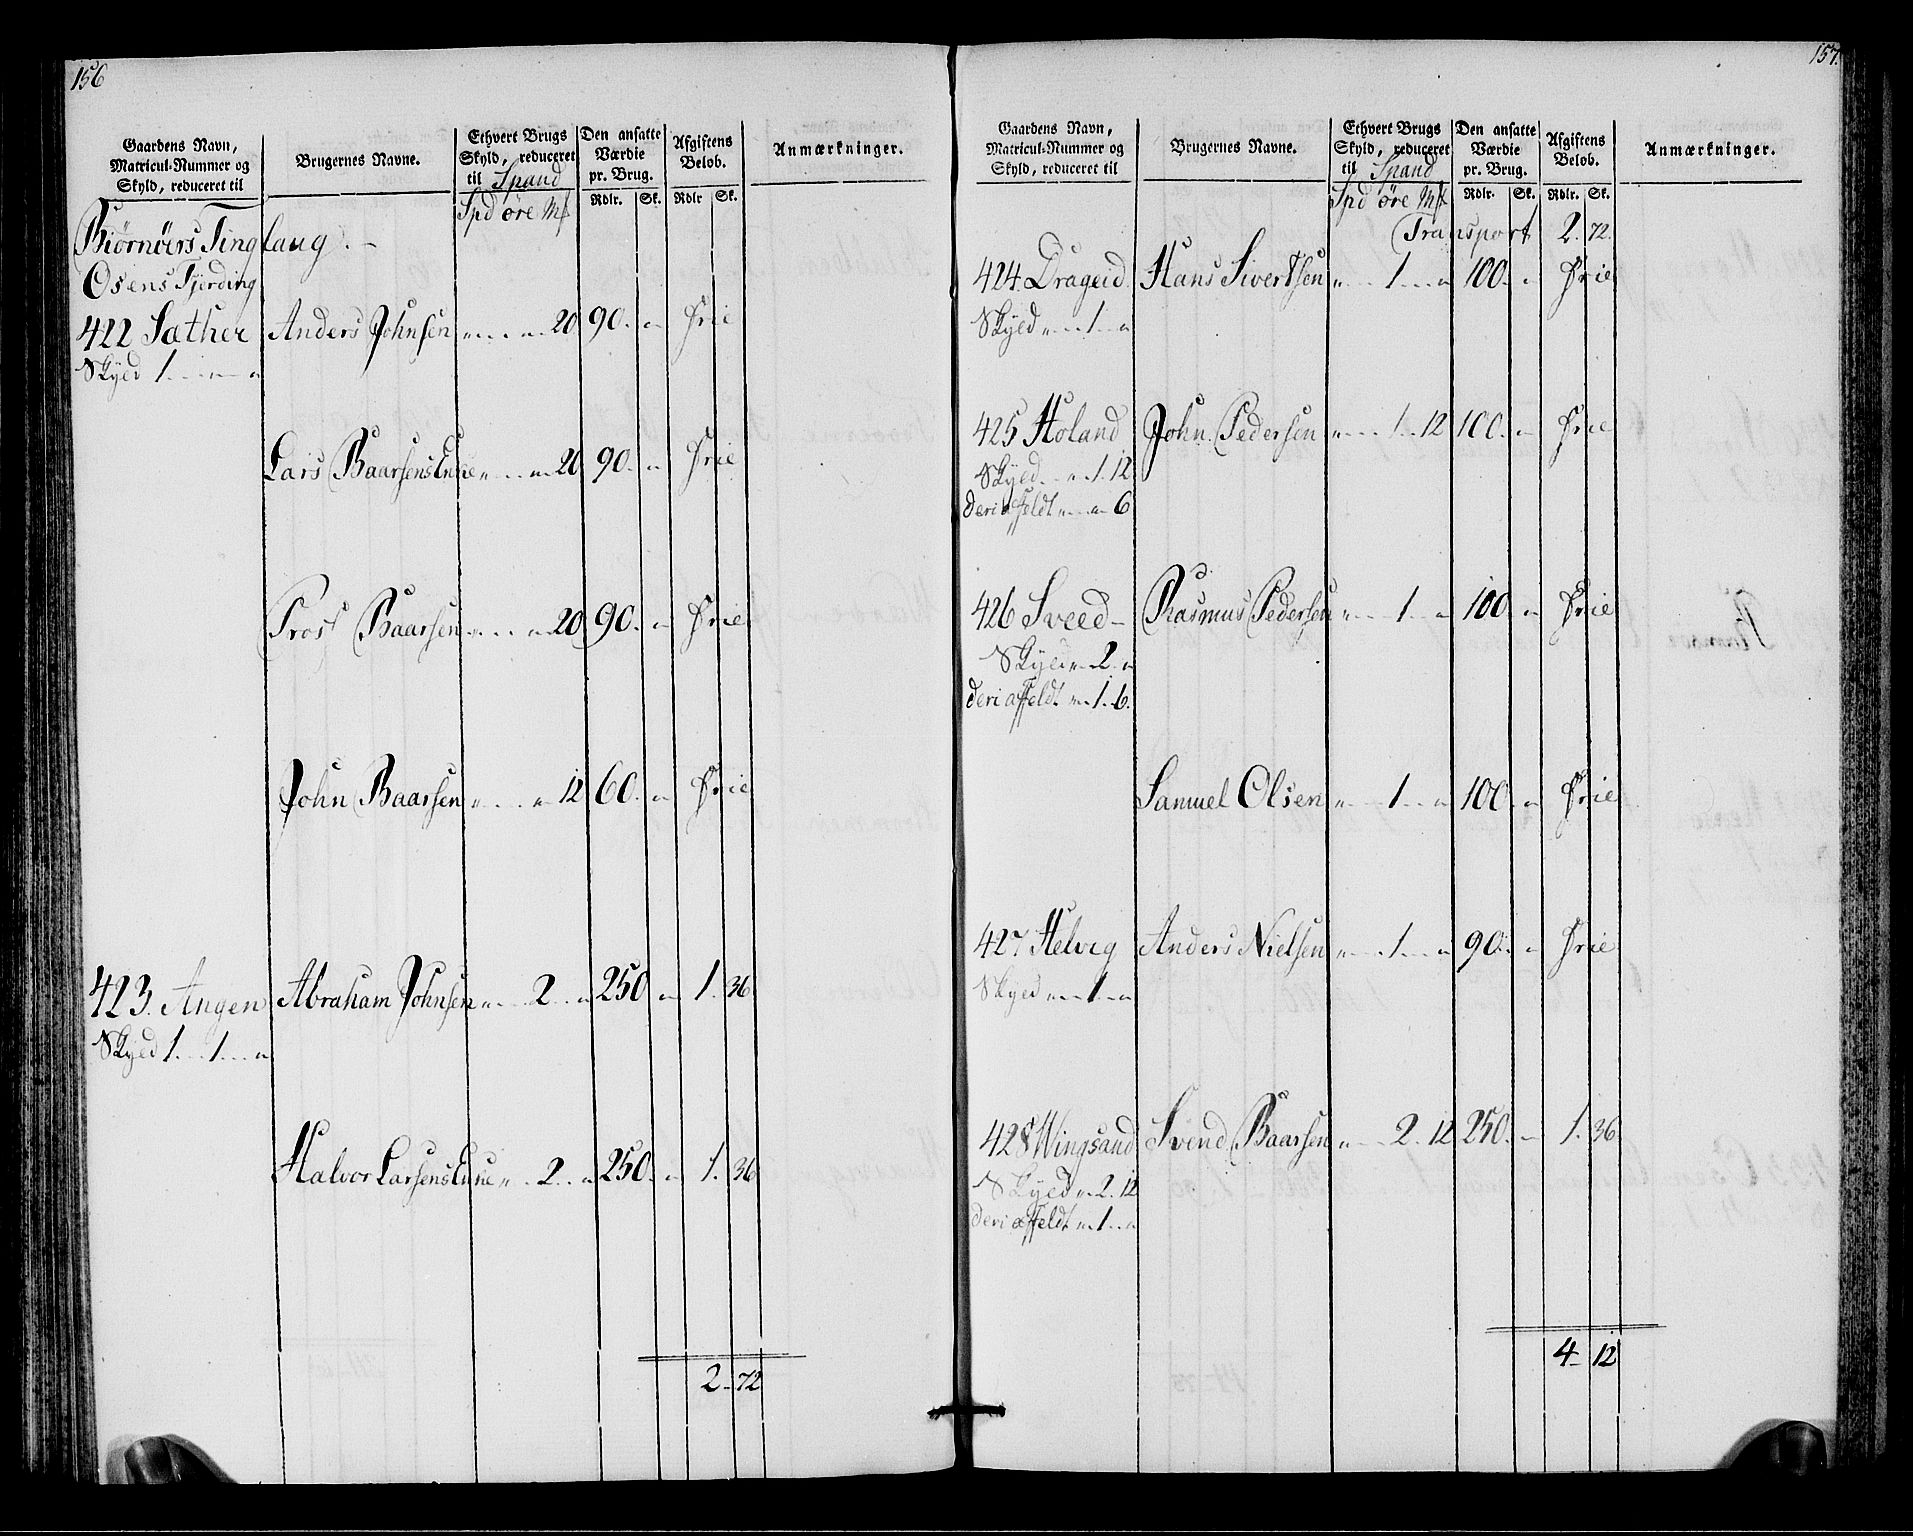 156
Gaardens Navn, Matricul-Nummer og Skyld, reduceret til
Brugernes Navne.
Ethvert Brugs Skyld, reduceret til Spand
Den ansatte Værdie pr. Brug.
Afgiftens Belob.
Anmærkninger.
Spd øre Mk
Rdlr. Sk. Rdlr Sk.
Biørnöers Tinglaug. -
Osens Fjerding
422 Sæther Anders Johnsen " " 20 90. " frie
Skyld 1 " "
Lars Baarsens Enke " " 20 90. " frie
Trost Baarsen " " 20 90. " frie
John Baarsen " " 12 60. " frie
423. Angen Abraham Johnsen " 2 " 250 " 1. 36
Skyld 1 1 "
Halvor Larsens Enke " 2 " 250. " 1. 36
2 - 72
157.
Gaardens Navn, Matricul-Nummer og Skyld, reduceret til
Brugernes Navne.
Ethvert Brugs Skyld, reduceret til Spand
Den ansatte Værdie pr. Brug.
Afgiftens Belob.
Anmærkninger.
Spd øre Mk
Rdlr. Sk. Rdlr. Sk.
Transport 2. 72.
424 Drageid Hans Sivertsen " 1 " 100. " frie
Skyld " 1 "
425 Holand John Pedersen " 1 12 100. " frie
Skyld " 1. 12
deri affeldt " " 6
426 Sveed - Rasmus Pedersen " 1 " 100 " frie
Skyld " 2 "
deri affeldt " 1. 6.
Samuel Olsen " 1 " 100. " frie
427 Helvig Anders Nielsen " 1 " 90. " frie
Skyld " 1 "
428 Wingsand Svend Baarsen " 2. 12 250. " 1. 36
Skyld " 2. 12
deri affeldt " 1 "
4 - 12